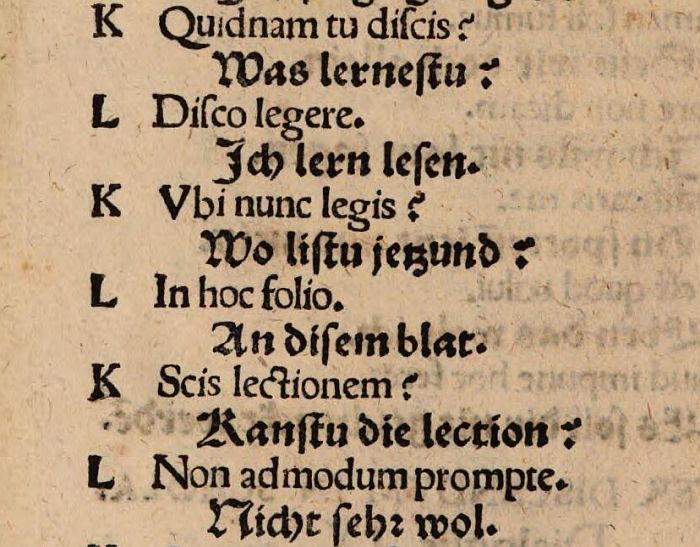 K Quidnam tu diſcis?
Was lerneſtu?
L Diſco legere.
Ich lern leſen.
K Vbi nunc legis?
Wo liſtu jetzund?
L In hoc folio.
An diſem blat.
K Scis lectionem?
Kanſtu die lection?
L Non admodum prompte.
Nicht ſehꝛ wol.